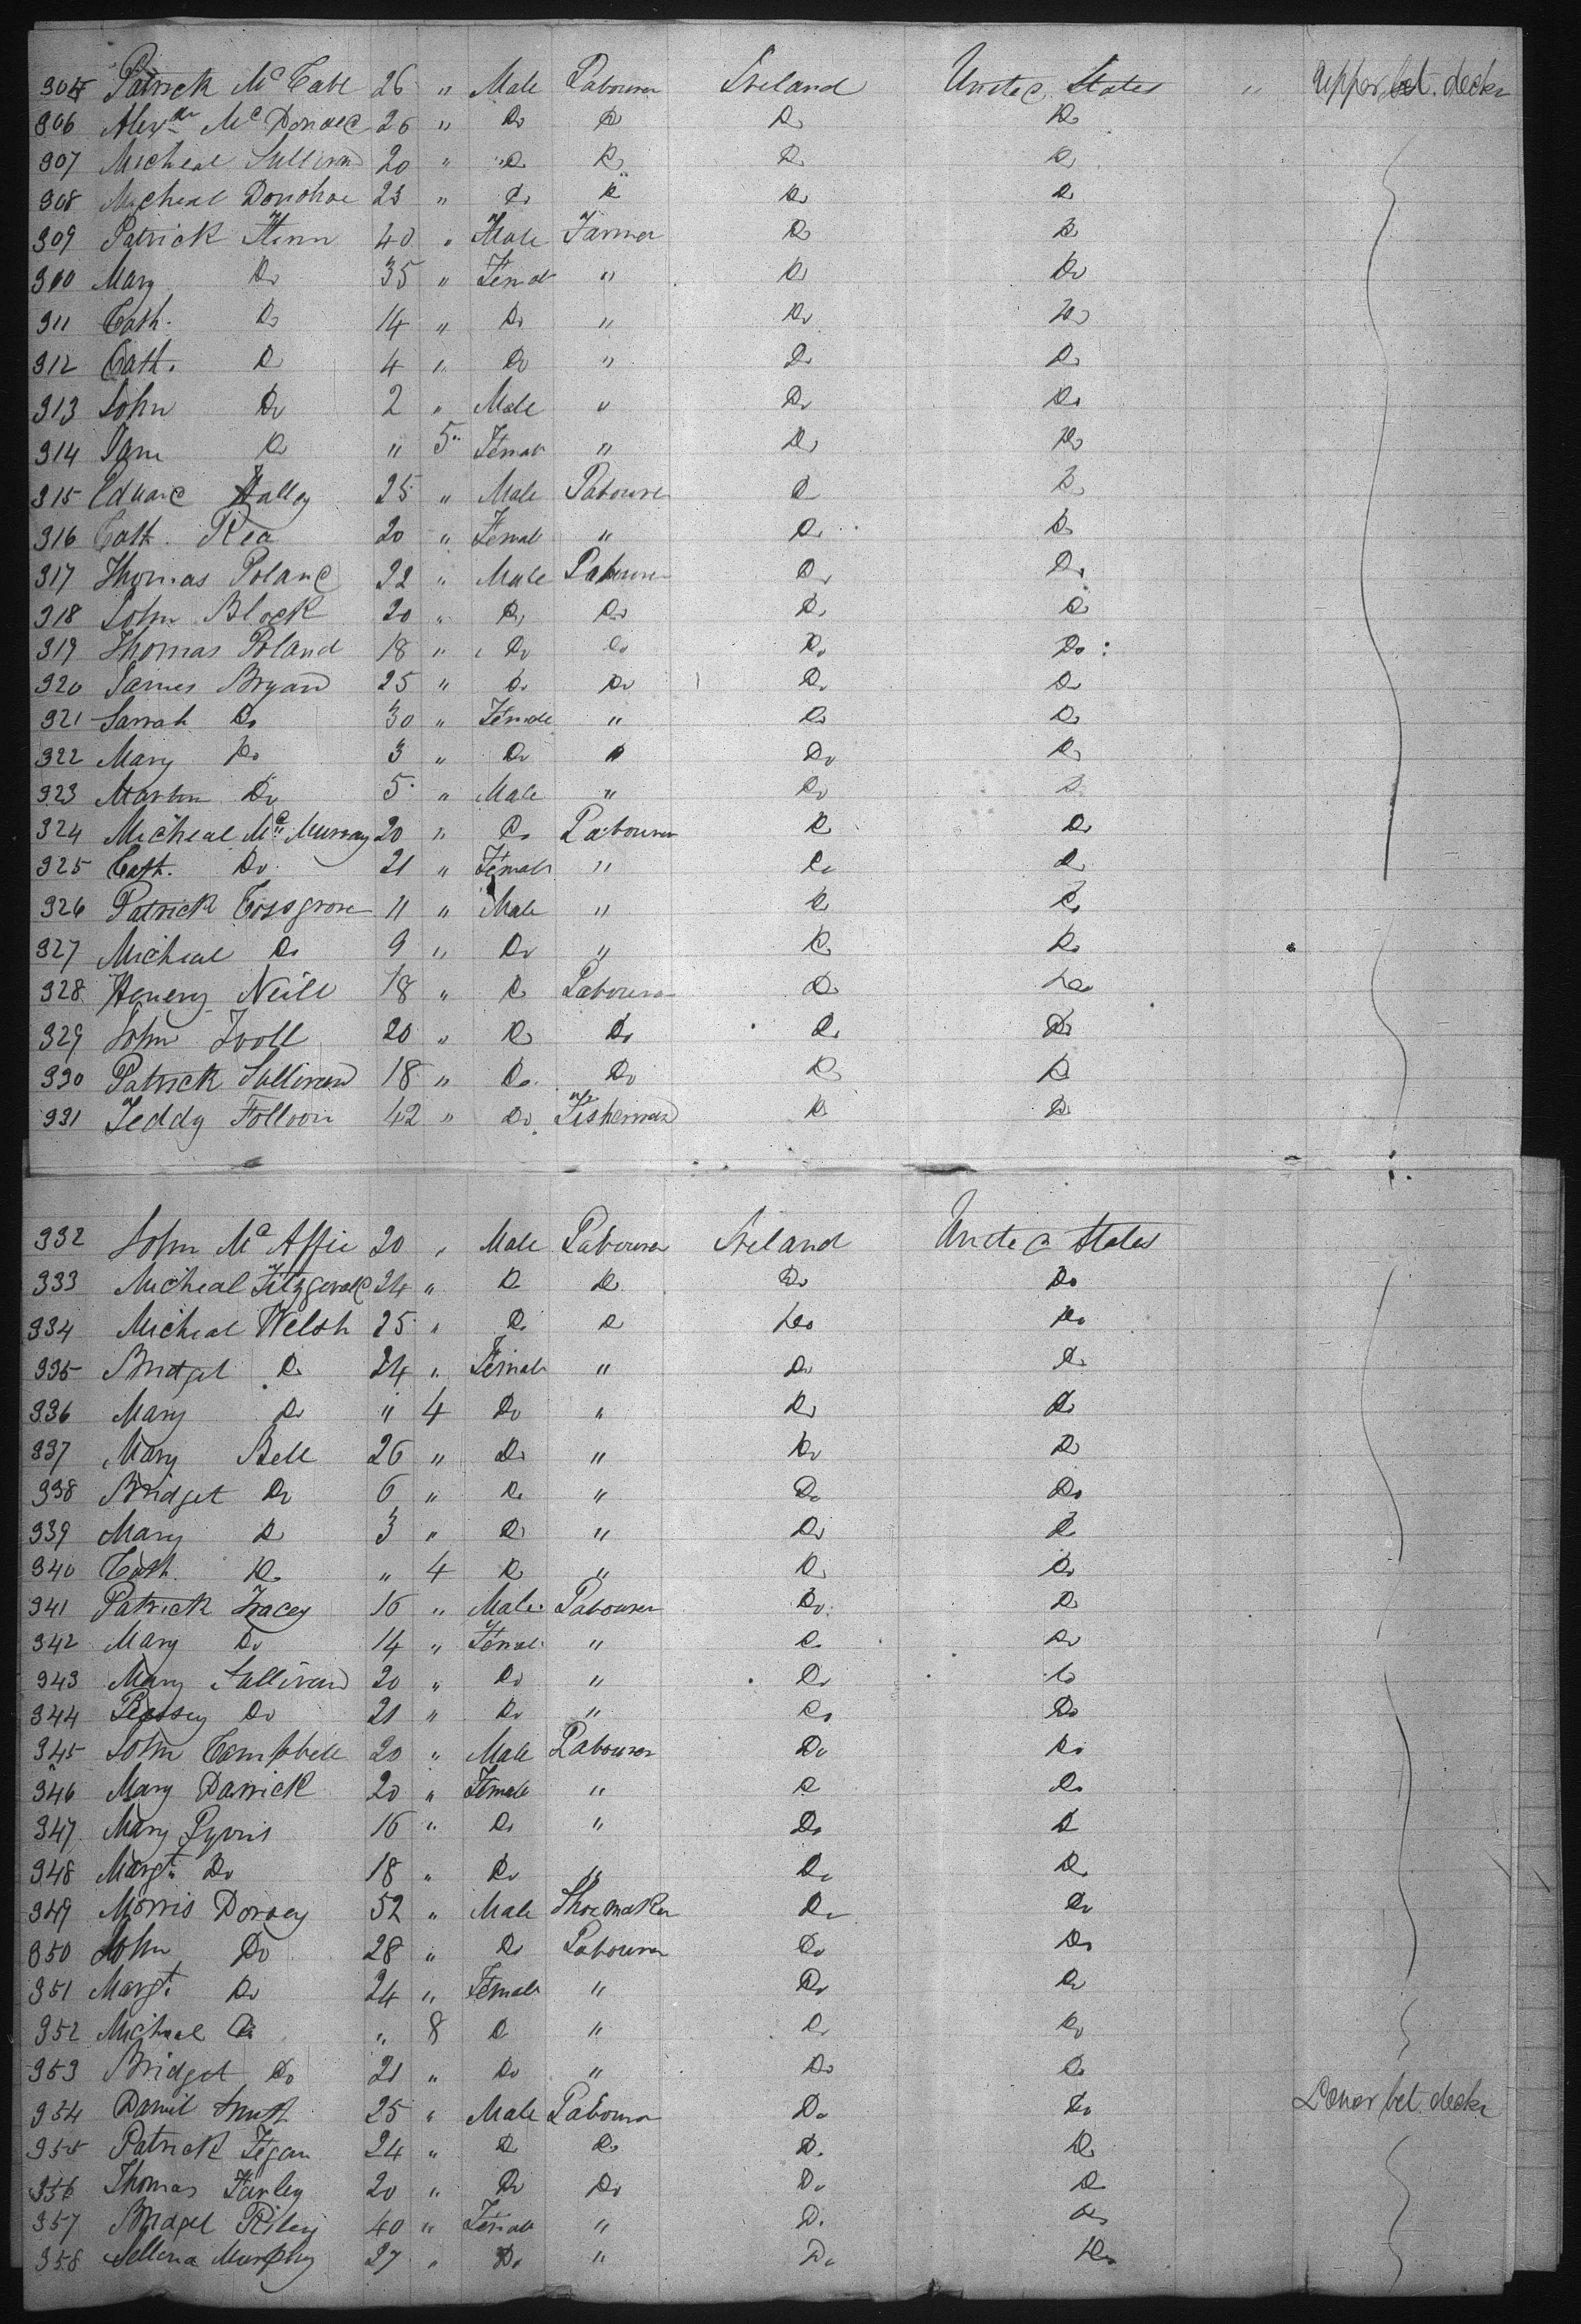 305 Patrick McCabe 26 " Male Labourer Ireland United States " Upper bet. decks
306 Alexdr McDonald 26 " Do Do Do Do
307 Micheal Sullivan 20 " Do Do Do Do
308 Micheal Donohoe 23 " Do Do Do Do
309 Patrick 40 " Male Farmer Do Do
310 Mary Do 35 " Female " Do Do
311 Cath. Do 14 " Do " Do Do
312 Cath. Do 4 " Do " Do Do
313 John Do 2 " Male " Do Do
314 Jane Do " 5 " Female " Do Do
315 Edward Halley 25 " Male Labourer Do Do
316 Cath. Rea 20 " Female " Do Do
317 Thomas Poland 22 " Male Labourer Do Do
318 John Block 20 " Do Do Do Do
319 Thomas Poland 18 " Do Do Do Do
320 James Bryan 25 " Do Do Do Do
321 Sarrah Do 30 " Female " Do Do
322 Mary Do 3 " Do " Do Do
323 Martin Do 5 " Male " Do Do
324 Micheal Mc Murray 20 " Do Labourer Do Do
325 Cath. Do 21 " Female " Do Do
326 Patrick Cossgrove 11 " Male " Do Do
327 Micheal Do 9 " Do " Do Do
328 Henery Neill 18 " Do Labourer Do Do
329 John 20 " Do Do Do Do
330 Patrick Sullivan 18 " Do Do Do Do
331 Teddy Folloon 42 " Do Fisherman Do Do
332 John McAffie 20 " Male Labourer Ireland United States
333 Micheal Fitzgerald 24 " Do Do Do Do
334 Micheal Welsh 25 " Do Do Do Do
335 Bridget Do 24 " Female " Do Do
336 Mary Do " 4 Do " Do Do
337 Mary Bell 26 " Do " Do Do
338 Bridget Do 6 " Do " Do Do
339 Mary Do 3 " Do " Do Do
340 Cath. Do " 4 Do " Do Do
341 Patrick Tracey 16 " Male Labourer Do Do
342 Mary Do 14 " Female " Do Do
343 Mary Sullivan 20 " Do " Do Do
344 Do 21 " Do " Do Do
345 John Campbell 20 " Male Labourer Do Do
346 Mary Darrick 20 " Female " Do Do
347 Mary Lyons 16 " Do " Do Do
348 Margt. Do 18 " Do " Do Do
349 Morris Dorsey 52 " Male Shoemaker Do Do
350 John Do 28 " Do Labourer Do Do
351 Margt. Do 24 " Female " Do Do
352 Micheal Do " 8 Do " Do Do
353 Bridget Do 21 " Do " Do Do
354 Daniel Smith 25 " Male Labourer Do Do Lower bet. decks
355 Patrick Fegan 24 " Do Do Do Do
356 Thomas Farley 20 " Do Do Do Do
357 Bridget Riley 40 " Female " Do Do
358 Sellena Murphy 27 " Do " Do Do